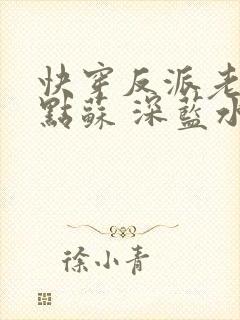 快穿反派老
點蘇 深藍水
徐小青